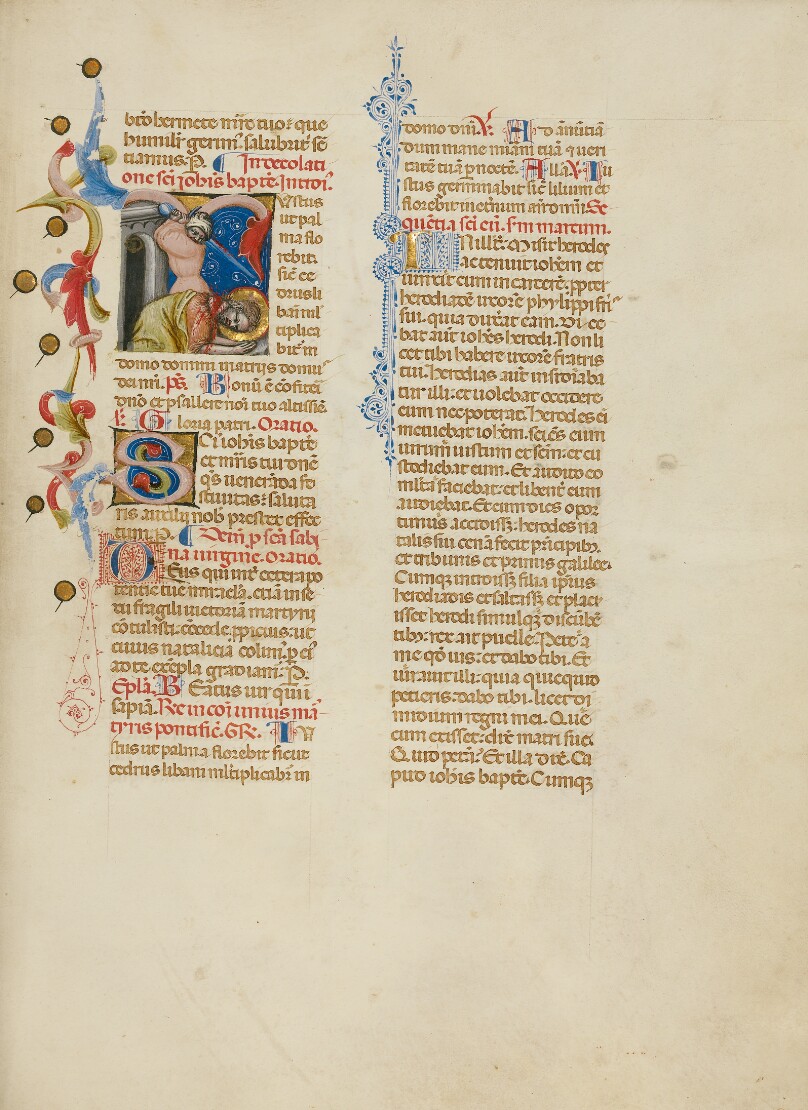 humilit̃ germĩ. salubrit̃ sẽ
tiamus. P. In decolati
one sc̃i ioħis bapt̃e. Introi.
Iustus
ut pal
ma flo
rebit.
sic̃ ce
drus li
bani ml̃
tiplica
bit̃ in
domo domini in atriis domu
dei nr̃i. ps̃. Bonũ ẽ cõfiteri
dño et psallere noĩ tuo altissiẽ
Gloria patri. Oratio.
Sc̃i ioħis bapt̃e
et mr̃is tui dnẽ
qs̃ ueneranda fe
stiuitas: saluta
ris auxilii nob̃ prestet effec
tum. P. Item p̱ sc̃a sabi
na uirgine. Oratio.
Deus qui int̃ cetera po
tentie tue miracĩa. etiã in se
xu fragili uictoriã martyrij
cõtulisti. cõcede ꝓpicius: ut
cuius natalicia colim̃. p̱ ei̾
ad te exẽpla gradiam̃. P.
Ep̃la. Beatus uir qui ĩ
sapiã. Re in cõi unius mã
tyris pontific̃. GR. Iu
stus ut palma florebit sicut
cedrus libani ml̃tiplicabit̃ in
domo dñi. V̷. Ad anũtiã
dum mane miãm tuã ⁊ ueri
tatẽ tuã p̱ noctẽ. Alla. V̷. Iu
stus germinabit sic̃ lilium et
florebit in et̃num añ dõm̃. Se
quẽtia sc̃i eũ. s̃m marcum.
In illo t̃. Misit herodes
ac tenuit ioħem et
uinxit eum in carcerẽ. ꝓpter
herodiadẽ uxorẽ phylippi frĩs
sui. quia duxerat eam. Di ce
bat aut̃ ioħes herodi. Non li
cet tibi habere uxorẽ fratris
tui. herodias aut̃ insidiaba
tur illi: et uolebat occidere
eum nec poterat. Herodes ei̾
metuebat ioħem. sciẽs eum
uirum iustum et sc̃m. et cu
stodiebat eum. Et audito eo
ml̃ta faciebat: et libent̃ eum
audiebat. Et cum dies opor
tunus accidisset. herodes na
talis sui cenã fecit pricipib̾.
et tribunis et primis galilee.
Cumqꝫ introissꝫ filia ip̃ius
herodiadis et saltassꝫ et placu
isset herodi simulqꝫ discũbẽ
tib̾. rex ait puelle. Pete a
me qd̃ uis: et dabo tibi. Et
iurauit illi: quia quicquid
petieris. dabo tibi. licet di
midium regni mei. Que
cum exisset. dix̃ matri sue.
Quid petã? Et illa dix̃. Ca
put ioħis bapt̃e. Cumqꝫ